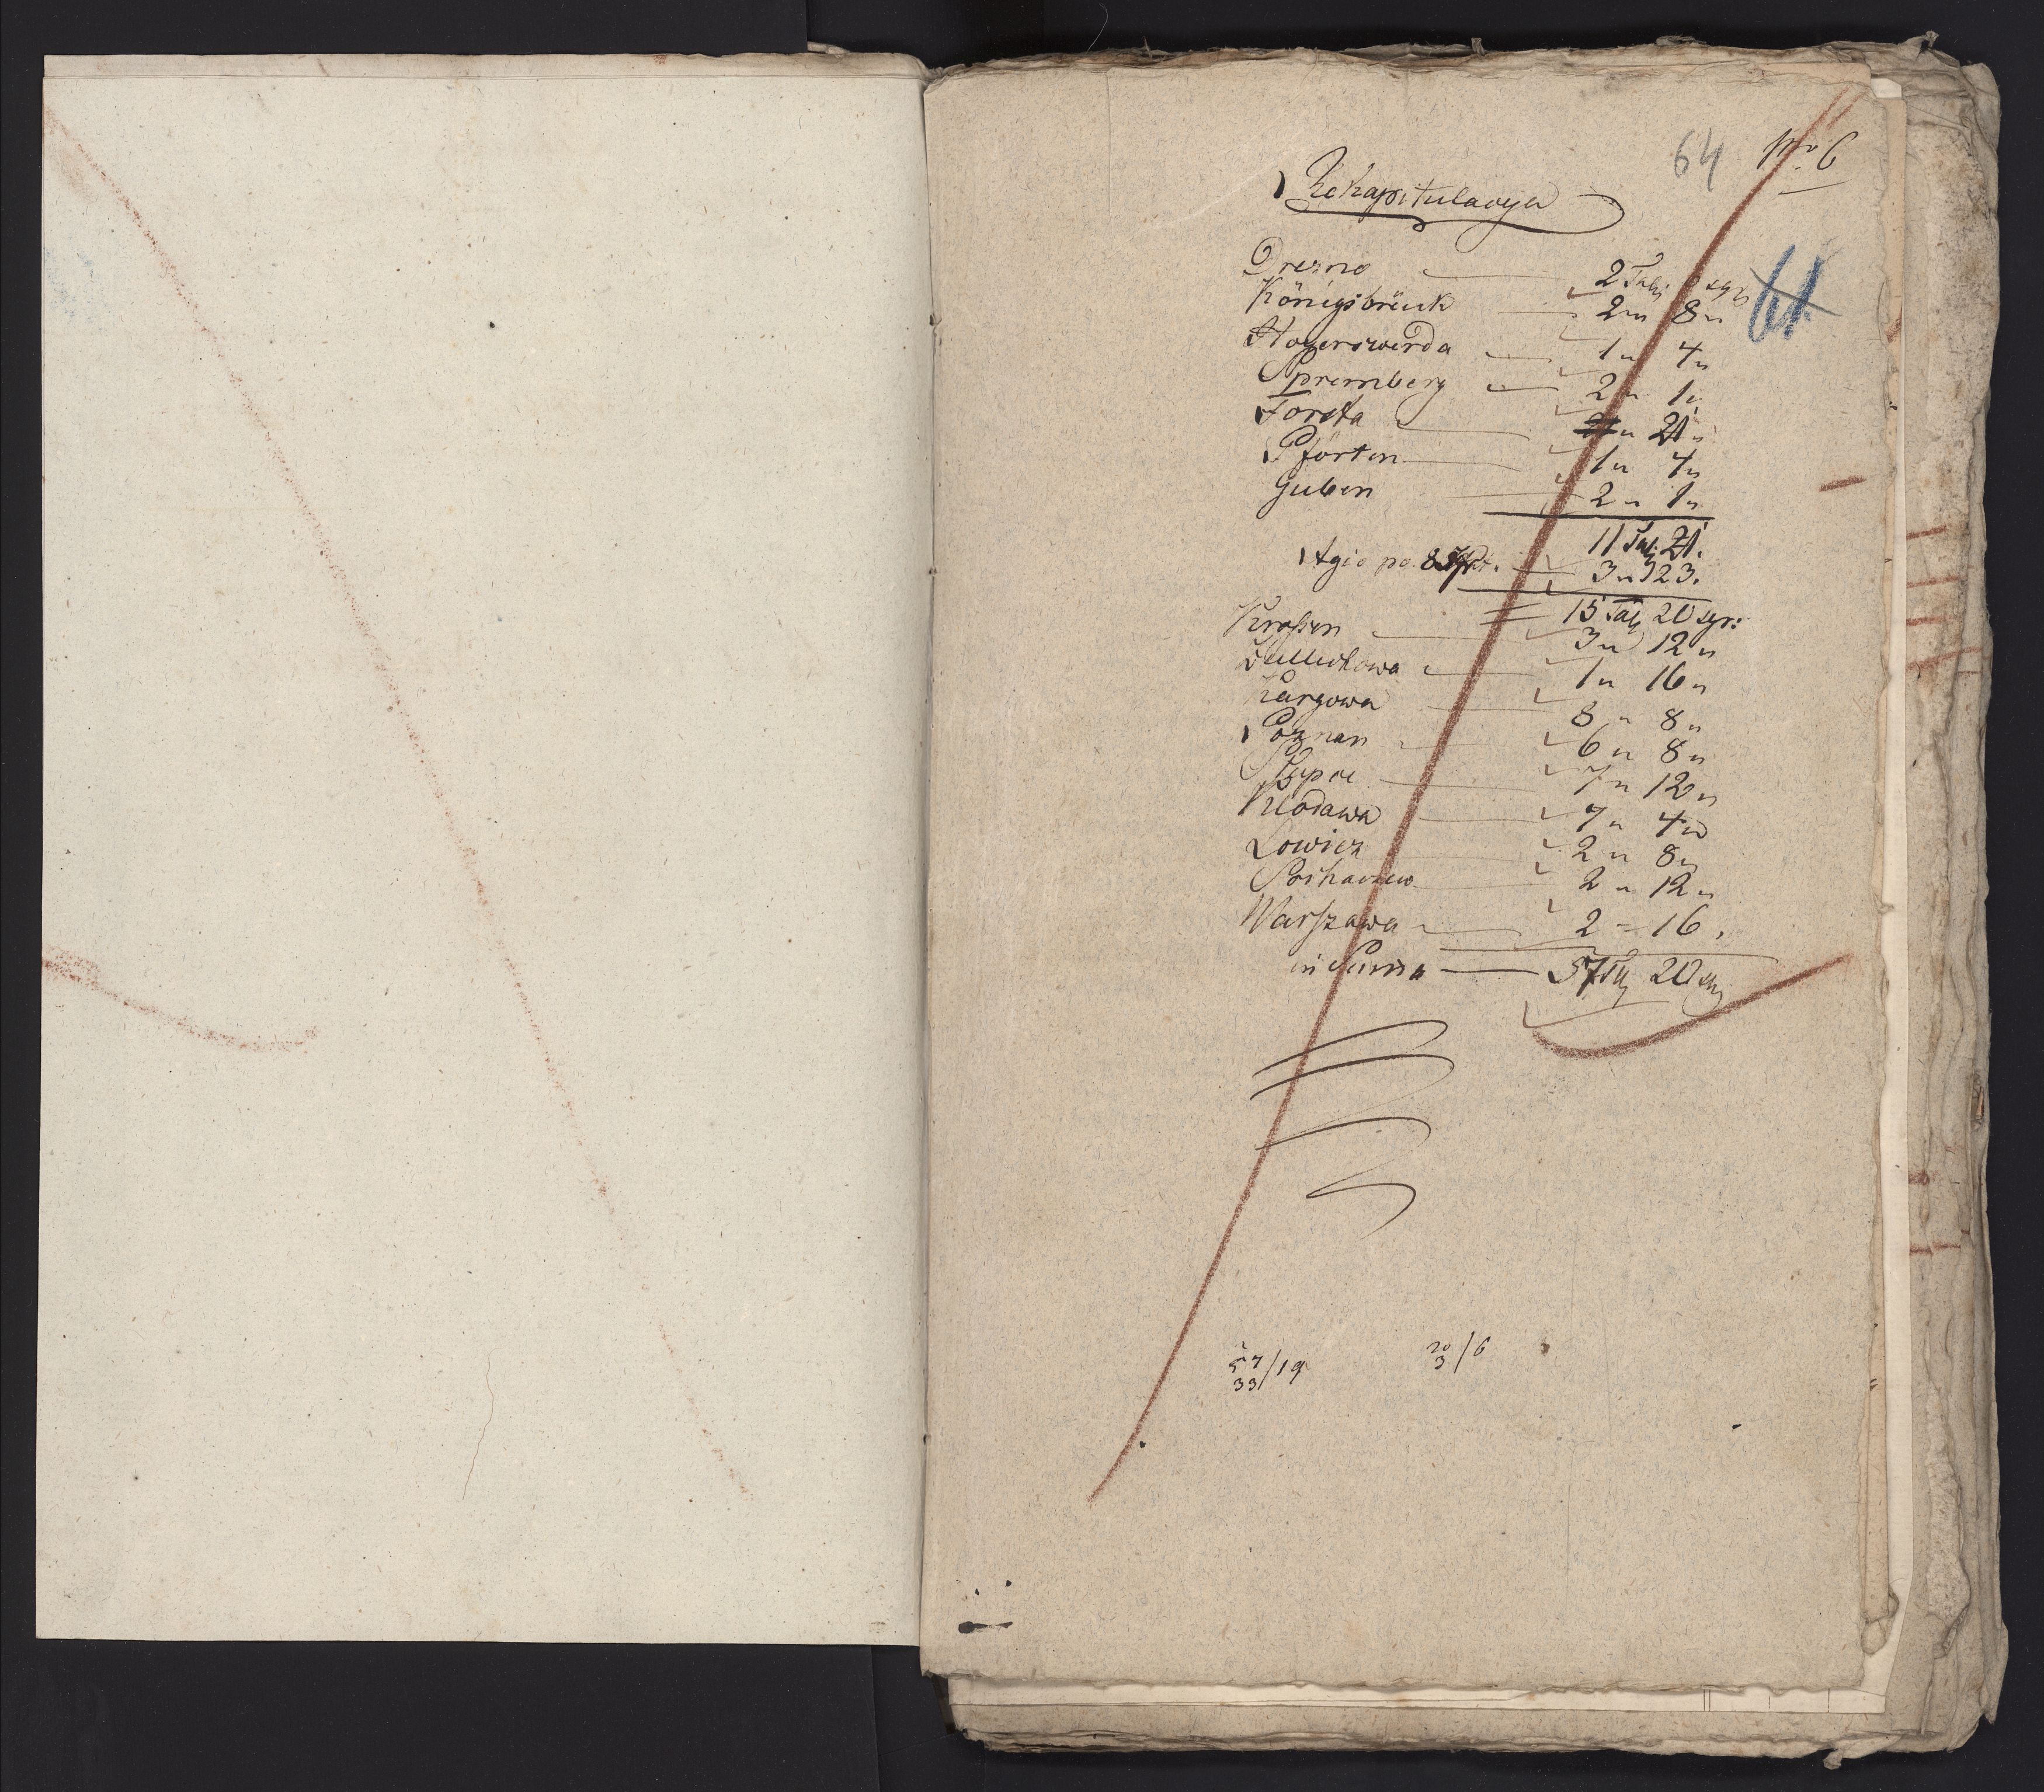 64 Nro 6
Rekapitulacya
61
Drezno — 2 Talr sgr
Königsbrück — 2 " 8 "
Hoyerswerda — 1 " 4 "
Spremberg — 2 " 1 "
Forsta — " 21 "
Pförten — 1 " 4 "
Guben — 2 " 1 "
11 Tal. 21.
Agio po — 3 " 23.
= 15 Tal 20 sgr:
Kroßen — 3 " 12 "
Zullichowa — 1 " 16 "
Kargowa — 8 " 8 "
Poznan — 6 " 8 "
Słupce — 7 " 12 "
Kłodawa — 7 " 4 "
Lowicz — 2 " 8 "
Sochaczew — 2 " 12 "
Warszawa — 2 " 16.
in Summa — 57 Tal 20 sgr
57/19 20/6
33 3